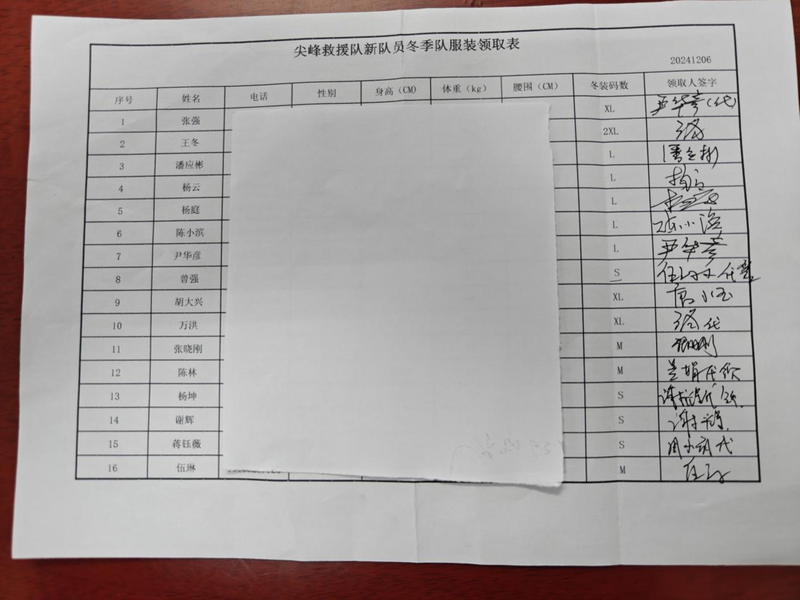 尖峰救援队新队员冬季队服装领取表
20241206
序号 姓名 电话 性别 身高（CM） 体重（kg） 腰围（CM） 冬装码数 领取人签字
1 张强 XL 尹华彦（代）
2 王冬 2XL
3 潘应彬 L 潘应彬
4 杨云 L 杨云
5 杨庭 L
6 陈小滨 L 陈小滨
7 尹华彦 L 尹华彦
8 曾强 S
9 胡大兴 XL
10 万洪 XL 代
11 张晓刚 M
12 陈林 M
13 杨坤 S
14 谢辉 S 谢辉
15 蒋钰薇 S 代
16 伍琳 M